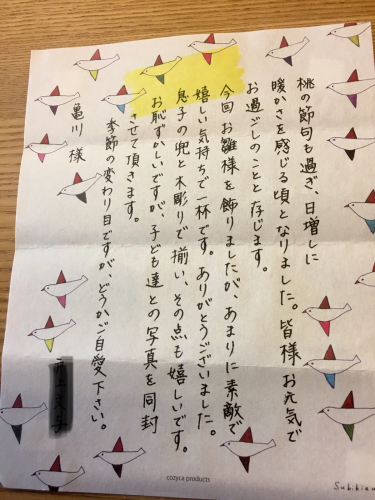 桃の節句も過ぎ、日増しに
暖かさを感じる頃となりました。皆様お元気で
お過ごしのことと存じます。
今回お雛様を飾りましたが、あまりに素敵で
嬉しい気持ちで一杯です。ありがとうございました。
息子の兜と木彫りで揃い、その点も嬉しいです。
お恥ずかしいですが、子ども達との写真を同封
させて頂きます。
季節の変わり目ですが、どうかご自愛下さい。
亀川 様
cozyca products